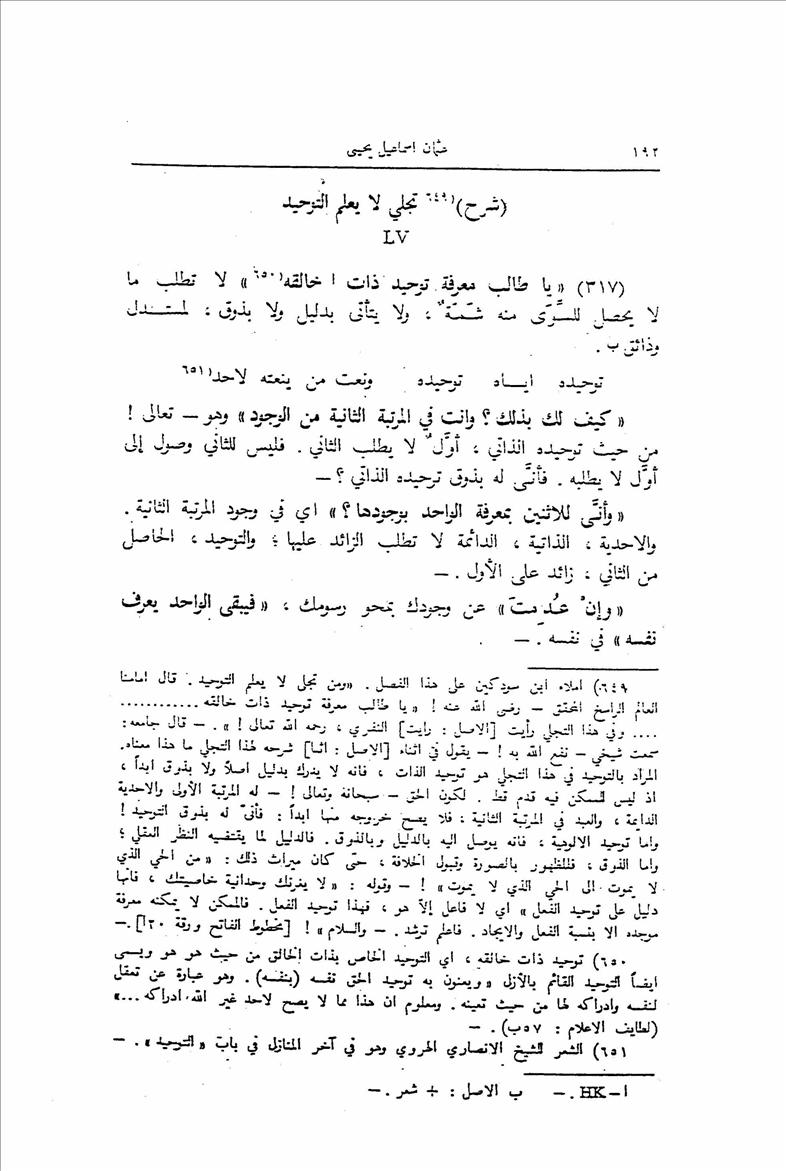 ١٩٢ عثمان اسماعيل يحيى
(شرح)٦٤٩) تجلي لا يعلم التوحيد
LV
(٣١٧) «يا طالب معرفة توحيد ذات ا خالقه٦٥٠)» لا تطلب ما
لا يحصل للسِّوَى منه شَمَّةٌ، ولا يتأتى بدليل ولا بذوق، لمستدل
وذائق ب.
توحيده ايـــاه توحيده ونعت من ينعته لاحد٦٥١)
«كيف لك بذلك؟ وانت في المرتبة الثانية من الوجود» وهو – تعالى!
من حيث توحيده الذاتي، أوَّلٌ لا يطلب الثاني. فليس للثاني وصول إلى
أوَّل لا يطلبه. فأنَّى له بذوق توحيده الذاتي؟ –
«وأنَّى للاثنين بمعرفة الواحد بوجودها؟» اي في وجود المرتبة الثانية.
والاحدية، الذاتية، الدائمة لا تطلب الزائد عليها؛ والتوحيد، الحاصل
من الثاني، زائد على الأول. –
«وإنْ عُدِمتَ» عن وجودك بمحو رسومك، «فيبقى الواحد يعرف
نفسه» في نفسه. –
٦٤٩) املاء ابن سودكين على هذا الفصل. «ومن تجلى لا يعلم التوحيد. قال امامنا
العالم الراسخ المحقق – رضى الله عنه! «يا طالب معرفة توحيد ذات خالقه............
.... وفي هذا التجلي رأيت [الاصل: رايت] النفري، رحمه الله تعالى!». – قال جامعه:
سمعت شيخي – نفع الله به! – يقول في اثناء [الاصل: اثنا] شرحه لهذا التجلي ما هذا معناه.
المراد بالتوحيد في هذا التجلي هو توحيد الذات، فانه لا يدرك بدليل اصلاً ولا بذوق ابداً،
اذ ليس للممكن فيه قدم قط. لكون الحق – سبحانه وتعالى! – له المرتبة الأولى والاحدية
الدايمة، والعبد في المرتبة الثانية، فلا يصح خروجه منها ابداً: فأنّى له بذوق التوحيد!
واما توحيد الالوهية، فانه يوصل اليه بالدليل وبالذوق. فالدليل لما يقتضيه النظر العقلي؛
واما الذوق، فللظهور بالصورة وقبول الخلافة، حتى كان ميراث ذلك: «من الحي الذي
لا يموت الى الحي الذي لا يموت»! – وقوله: «لا يغرنك وحدانية خاصيتك، فانها
دليل على توحيد الفعل» اي لا فاعل إلاّ هو، فهذا توحيد الفعل. فالممكن لا يمكنه معرفة
موجده الا بنسبة الفعل والايجاد. فاعلم ترشد. – والسلام»! [مخطوط الفاتح ورقة ٢٠ا]. –
٦٥٠) توحيد ذات خالقه، اي التوحيد الخاص بذات الخالق من حيث هو هو ويسمى
ايضاً التوحيد القائم بالأزل «ويعنون به توحيد الحق نفسه (بنفسه). وهو عبارة عن تعقل
لنفسه وادراكه لها من حيث تعينه. ومعلوم ان هذا مما لا يصح لاحد غير الله. ادراكه...»
(لطايف الاعلام: ٥٧ب). –
٦٥١) الشعر للشيخ الانصاري الهروي وهو في آخر المنازل في باب «التوحيد». –
ا – HK. – ب الاصل: + شعر. –